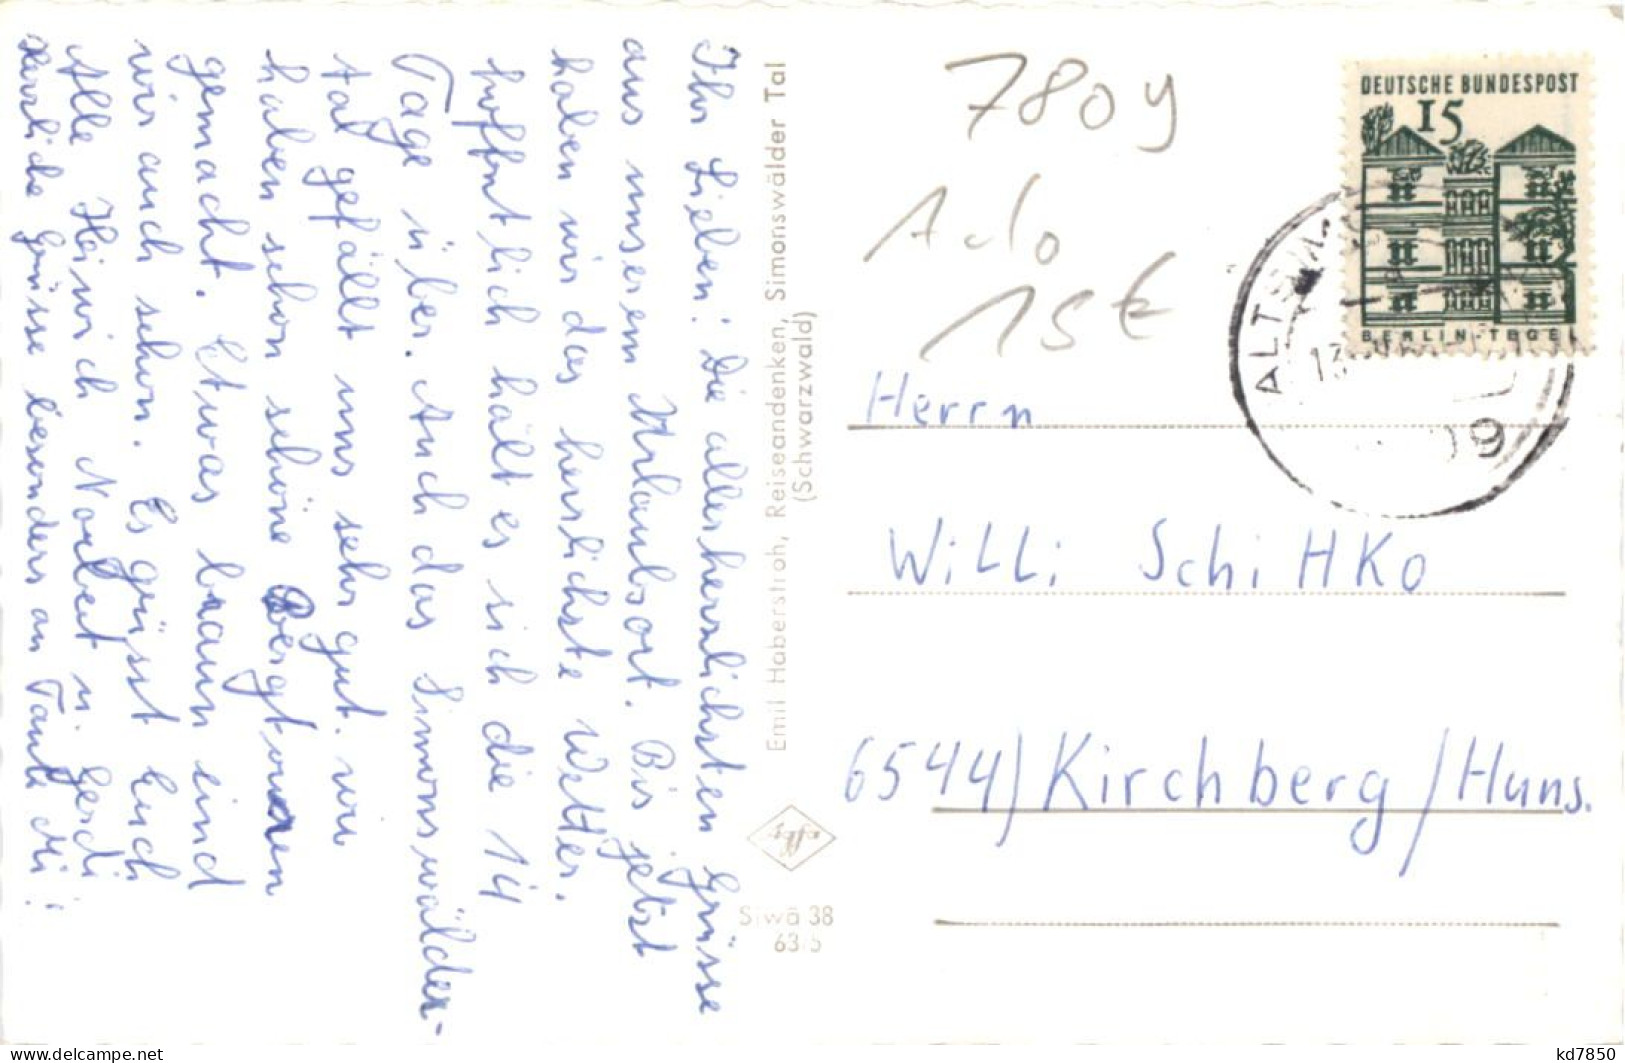 Ihr Lieben! Die allerherzlichsten Grüsse
aus unserem Urlaubsort. Bis jetzt
haben wir das herlichste Wetter.
hoffntlich hält es sich die 14
Tage über. Auch das Simonswälder-
tal gefällt uns sehr gut. wir
haben schon schöne Bergtouren
gemacht. Etwas braun sind
wir auch schon. Es grüsst Euch
Alle Heinrich Norbert u. Gerdi
Herzliche Grüsse besonders an Tante Mi!
Emil Haberstroh, Reiseandenken, Simonswälder Tal
(Schwarzwald)
Siwä 38
63/5
7809
Ado
15€
DEUTSCHE BUNDESPOST
15
BERLIN-TEGEL
ALTSIM
13
09
Herrn
Willi SchiHKo
6544) Kirchberg/Huns.
kd7850